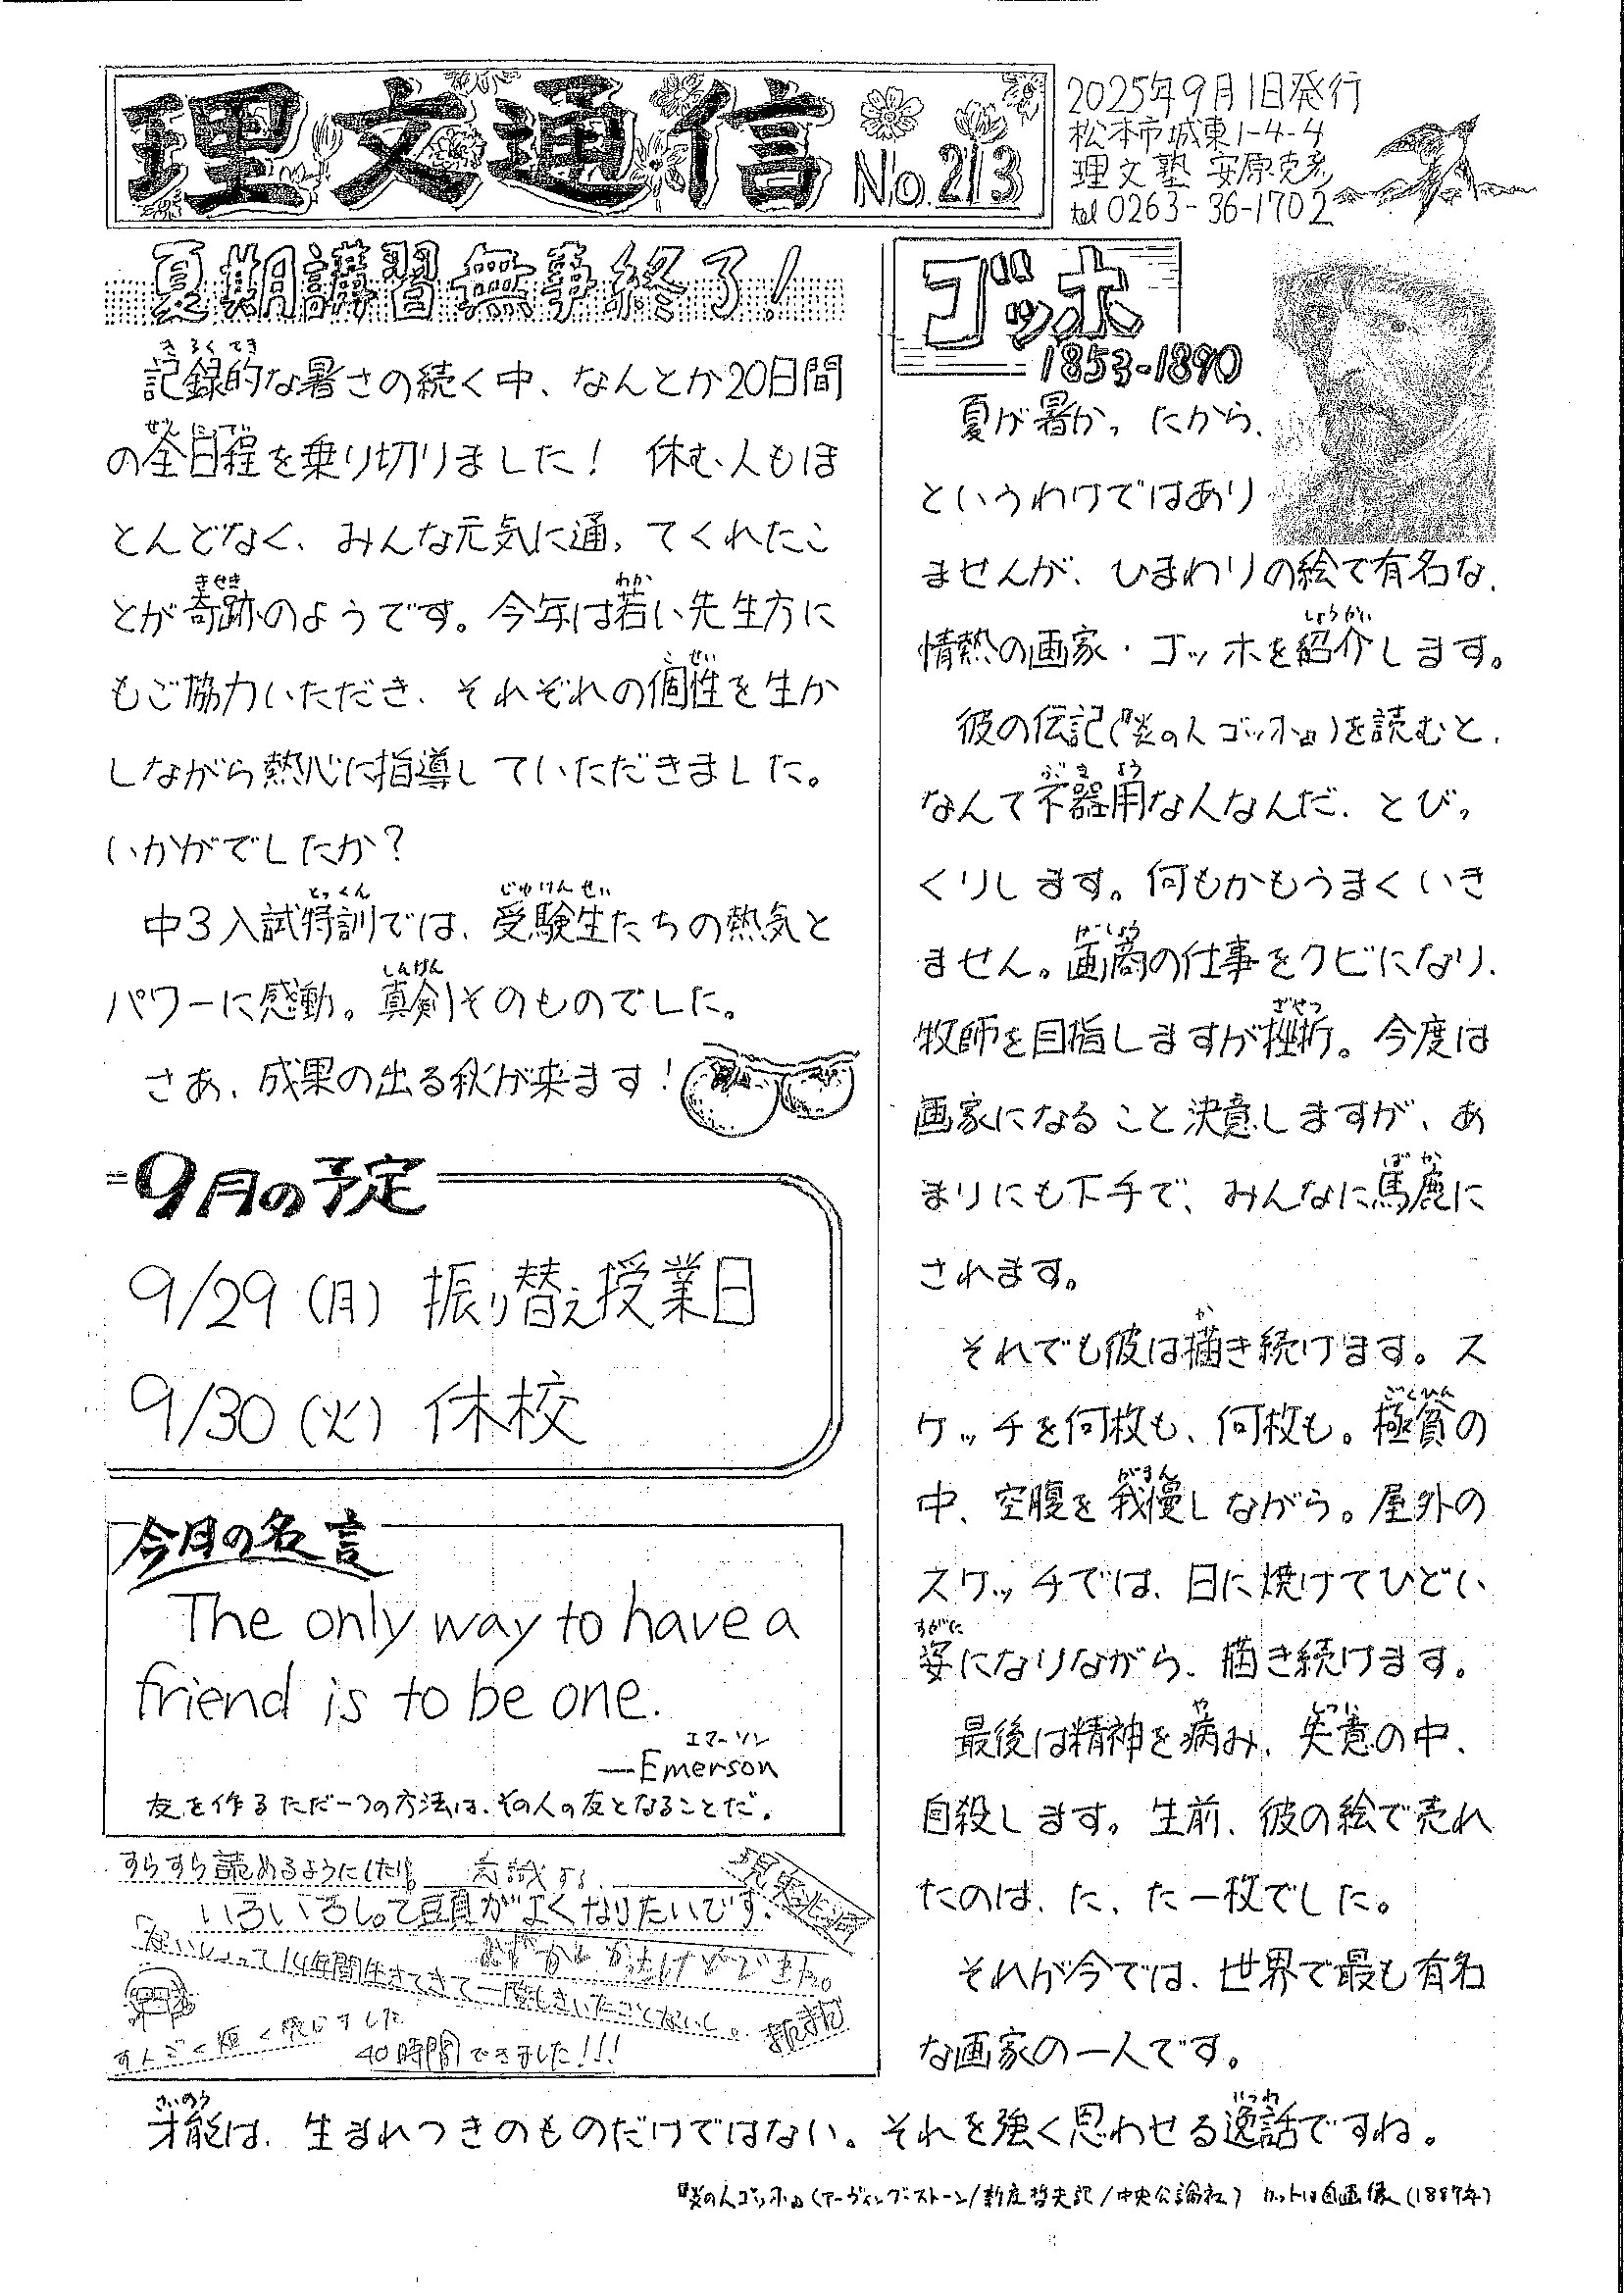 理文通信 No.213
2025年9月1日発行
松本市城東1-4-4
理文塾 安原克彦
tel 0263-36-1702
夏期講習無事終了!
きろくてき
記録的な暑さの続く中、なんとか20日間
ぜんにってい
の全日程を乗り切りました! 休む人もほ
とんどなく、みんな元気に通ってくれたこ
きせき わか
とが奇跡のようです。今年は若い先生方に
こせい
もご協力いただき、それぞれの個性を生か
しながら熱心に指導していただきました。
いかがでしたか?
とっくん じゅけんせい
中3入試特訓では、受験生たちの熱気と
しんけん
パワーに感動。真剣そのものでした。
さあ、成果の出る秋が来ます!
9月の予定
9/29(月) 振り替え授業日
9/30(火) 休校
今月の名言
The only way to have a
friend is to be one.
エマーソン
—Emerson
友を作るただ一つの方法は、その人の友となることだ。
すらすら読めるようにしたい。
いろいろしって頭がよくなりたいです。
むずかしかったけどできた。
40時間できました!!!
ゴッホ
1853-1890
夏が暑かったから、
というわけではあり
ませんが、ひまわりの絵で有名な、
しょうかい
情熱の画家・ゴッホを紹介します。
彼の伝記(『炎の人ゴッホ』)を読むと、
ぶきよう
なんて不器用な人なんだ、とびっ
くりします。何もかもうまくいき
がしょう
ません。画商の仕事をクビになり、
ざせつ
牧師を目指しますが挫折。今度は
画家になること決意しますが、あ
ばか
まりにも下手で、みんなに馬鹿に
されます。
か
それでも彼は描き続けます。ス
ごくひん
ケッチを何枚も、何枚も。極貧の
がまん
中、空腹を我慢しながら。屋外の
スケッチでは、日に焼けてひどい
すがた
姿になりながら、描き続けます。
や しつい
最後は精神を病み、失意の中、
自殺します。生前、彼の絵で売れ
たのは、たった一枚でした。
それが今では、世界で最も有名
な画家の一人です。
さいのう いつわ
才能は、生まれつきのものだけではない。それを強く思わせる逸話ですね。
『炎の人ゴッホ』(アーヴィング・ストーン/新庄哲夫訳/中央公論社) カットは自画像(1887年)